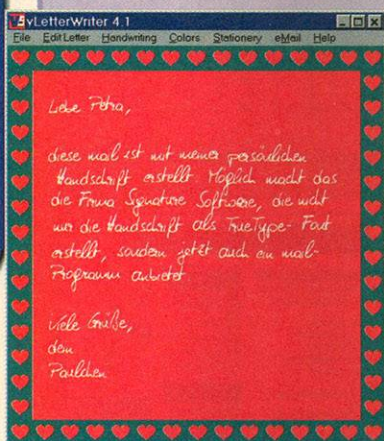 vLetterWriter 4.1
File Edit Letter Handwriting Colors Stationery eMail Help
Liebe Petra,
diese mail ist mit meiner persönlichen
Handschrift erstellt. Möglich macht das
die Firma Signature Software, die nicht
nur die Handschrift als TrueType-Font
erstellt, sondern jetzt auch ein mail-
Programm anbietet
Viele Grüße,
dein
Paulchen